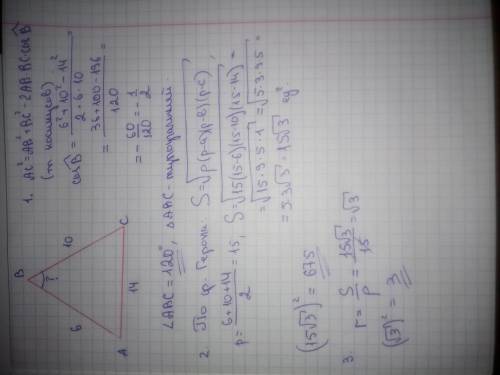 B
?
6
10
A
14
C
1. AC² = AB² + BC² - 2AB·BC·cos B
(т. косинусов)
cos B = (6² + 10² - 14²) / (2·6·10) =
= (36 + 100 - 196) / 120 =
= - 60/120 = - 1/2
∠ABC = 120°, △ABC - тупоугольный.
2 По ф. Герона: S = √(p(p-a)(p-b)(p-c)),
p = (6+10+14)/2 = 15, S = √(15(15-6)(15-10)(15-14)) =
= √(15·9·5·1) = √(5·3·9·5) =
= 5·3√3 = 15√3 ед².
(15√3)² = 675
3. r = S/p = 15√3/15 = √3
(√3)² = 3